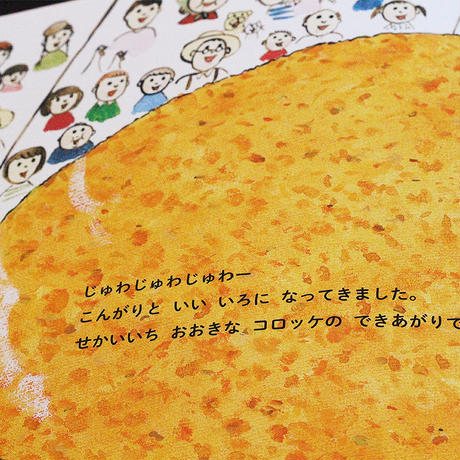 じゅわじゅわじゅわー
こんがりと いい いろに なってきました。
せかいいち おおきな コロッケの できあがりで